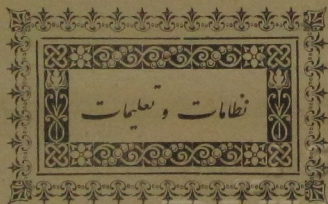 نظامات و تعلیمات